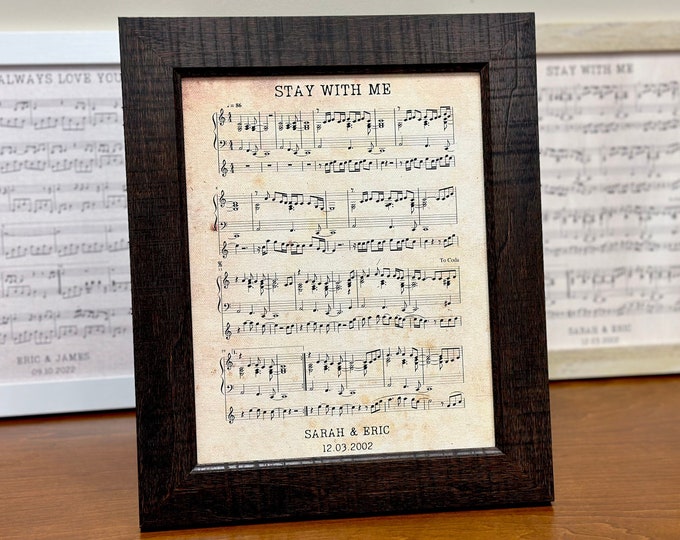 STAY WITH ME
= 86
To Coda
SARAH & ERIC
12.03.2002
ALWAYS LOVE YOU
ERIC & JAMES
09.10.2022
STAY WITH ME
SARAH & ERIC